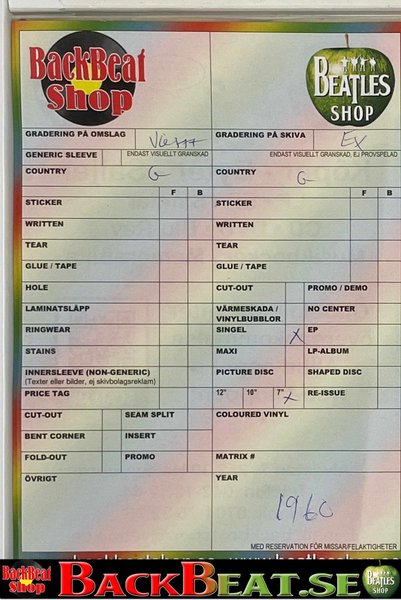 BackBeat
Shop
BEATLES
SHOP
GRADERING PÅ OMSLAG
GRADERING PÅ SKIVA Ex
GENERIC SLEEVE
ENDAST VISUELLT GRANSKAD
ENDAST VISUELLT GRANSKAD, EJ PROVSPELAD
COUNTRY G
COUNTRY G
F B
F B
STICKER
STICKER
WRITTEN
WRITTEN
TEAR
TEAR
GLUE / TAPE
GLUE / TAPE
HOLE
CUT-OUT
PROMO / DEMO
LAMINATSLÄPP
VÄRMESKADA /
VINYLBUBBLOR
NO CENTER
RINGWEAR
SINGEL X
EP
STAINS
MAXI
LP-ALBUM
INNERSLEEVE (NON-GENERIC)
(Texter eller bilder, ej skivbolagsreklam)
PICTURE DISC
SHAPED DISC
PRICE TAG
12" 10" 7" X
RE-ISSUE
CUT-OUT
SEAM SPLIT
COLOURED VINYL
BENT CORNER
INSERT
FOLD-OUT
PROMO
MATRIX #
ÖVRIGT
YEAR
1960
MED RESERVATION FÖR MISSAR/FELAKTIGHETER
BackBeat
Shop
BACKBEAT.SE
BEATLES
SHOP